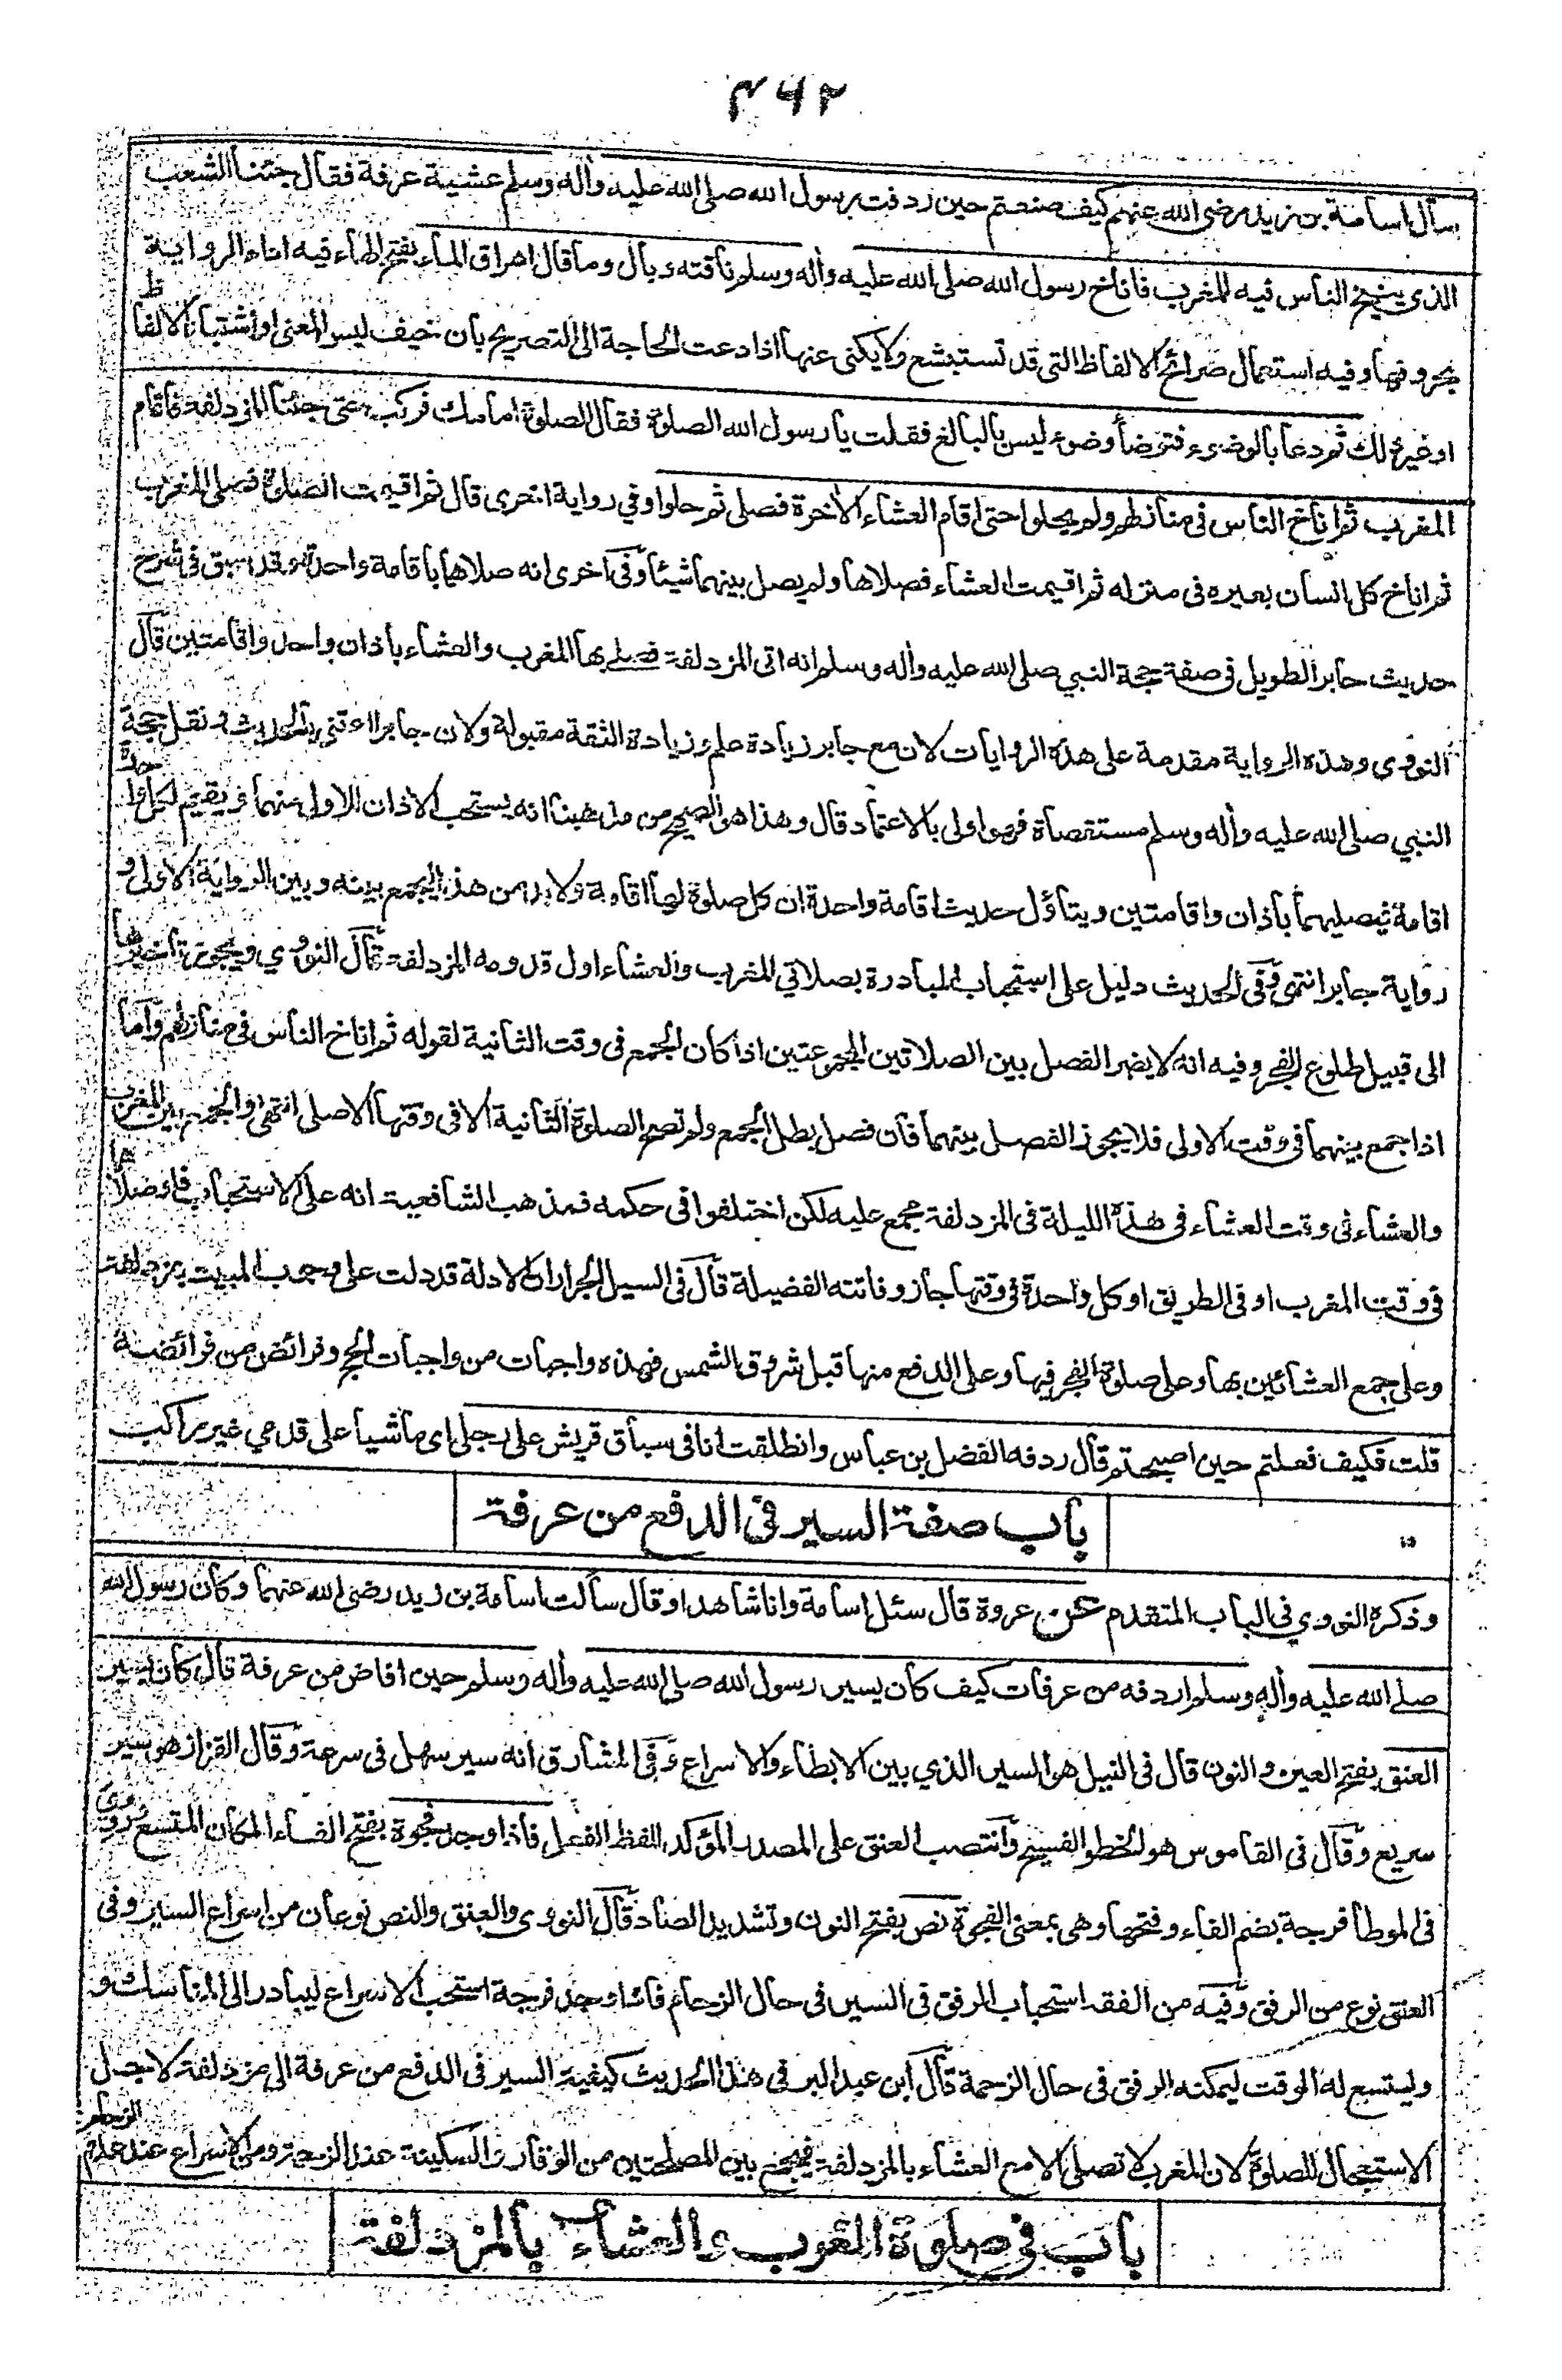 ۴۶۲
سأل اسامة بن زيد رضي الله عنهم كيف صنعتم حين ردفت رسول الله صلى الله عليه وأله وسلم عشية عرفة فقال جئنا الشعب
الذي ينيخ الناس فيه للمغرب فاناخ رسول الله صلى الله عليه وأله وسلم ناقته وبال وما قال اهراق الماء بفتح الهاء فيه اداء الرواية
بحروفها وفيه استعمال صرائح الالفاظ التي قد تستبشع ولا يكنى عنها اذا دعت الحاجة الى التصريح بان خيف لبس المعنى او اشتباه الالفاظ
او غير ذلك ثم دعا بالوضوء فتوضأ وضوء ليس بالبالغ فقلت يا رسول الله الصلوة فقال الصلوة امامك فركب حتى جئنا المزدلفة فاقام
المغرب ثم اناخ الناس في منازلهم ولم يحلوا حتى اقام العشاء الأخرة فصلى ثم حلوا وفي رواية اخرى قال ثم اقيمت الصلوة فصلى المغرب
ثم اناخ كل انسان بعيره في منزله ثم اقيمت العشاء فصلاها ولم يصل بينهما شيئا وفي اخرى انه صلاهما باقامة واحدة وقد سبق في شرح
حديث جابر الطويل في صفة حجة النبي صلى الله عليه وأله وسلم انه اتى المزدلفة فصلى بها المغرب والعشاء بأذان واحد واقامتين قال
النووي وهذه الرواية مقدمة على هذه الروايات لان مع جابر زيادة علم وزيادة الثقة مقبولة ولان جابرا اعتنى بالحديث ونقل حجة
النبي صلى الله عليه وأله وسلم مستقصاة فهو اولى بالاعتماد قال وهذا هو الصحيح من مذهبنا انه يستحب الاذان للاولى منهما ويقيم لكل واحدة
اقامة فيصليهما بأذان واقامتين ويتأول حديث اقامة واحدة ان كل صلوة لها اقامة ولا بد من هذا ليجمع بينه وبين الرواية الاولى و
رواية جابر انتهى وفي الحديث دليل على استحباب المبادرة بصلاتي المغرب والعشاء اول قدومه المزدلفة قال النووي ويجوز تأخيرهما
الى قبيل طلوع الفجر وفيه انه لا يضر الفصل بين الصلاتين المجموعتين اذا كان الجمع في وقت الثانية لقوله ثم اناخ الناس في منازلهم وأما
اذا جمع بينهما في وقت الاولى فلا يجوز الفصل بينهما فان فصل بطل الجمع ولم تصح الصلوة الثانية الا في وقتها الاصلى انتهى والجمع بين المغرب
والعشاء في وقت العشاء في هذه الليلة في المزدلفة مجمع عليه لكن اختلفوا في حكمه فمذهب الشافعية انه على الاستحباب فلو صلاهما
في وقت المغرب او في الطريق او كل واحدة في وقتها جاز وفاتته الفضيلة قال في السيل الجرار ان الادلة قد دلت على وجوب المبيت بمزدلفة
وعلى جمع العشائين بها وعلى صلوة الفجر فيها وعلى الدفع منها قبل شروق الشمس فهذه واجبات من واجبات الحج وفرائض من فرائضه
قلت فكيف فعلتم حين اصبحتم قال ردفه الفضل بن عباس وانطلقت انا في سباق قريش على رجلي اى ماشيا على قدمي غير راكب
باب صفة السير في الدفع من عرفة
وذكره النووي في الباب المتقدم عن عروة قال سئل اسامة وانا شاهد او قال سألت اسامة بن زيد رضي الله عنهما وكان رسول الله
صلى الله عليه وأله وسلم اردفه من عرفات كيف كان يسير رسول الله صلى الله عليه وأله وسلم حين افاض من عرفة قال كان يسير
العنق بفتح العين والنون قال في النيل هو السير الذي بين الابطاء والاسراع وفي المشارق انه سير سهل في سرعة وقال القزاز هو سير
سريع وقال في القاموس هو الخطو الفسيح وانتصب العنق على المصدر المؤكد للفظ الفعل فاذا وجد فجوة بفتح الفاء المكان المتسع وروي
في الموطأ فرجة بضم الفاء وفتحها وهي بمعنى الفجوة نص بفتح النون وتشديد الصاد قال النووي والعنق والنص نوعان من اسراع السير وفي
العنق نوع من الرفق وفيه من الفقه استحباب الرفق في السير في حال الزحام فاذا وجد فرجة استحب الاسراع ليبادر الى المناسك و
وليتسع له الوقت ليمكنه الرفق في حال الزحمة قال ابن عبد البر في هذا الحديث كيفية السير في الدفع من عرفة الى مزدلفة لاجل
الاستعجال للصلوة لان المغرب لا تصلى الا مع العشاء بالمزدلفة فيجمع بين المصلحتين من الوقار والسكينة عند الزحمة ومن الاسراع عند عدم الزحام
باب في صلوة المغرب والعشاء بالمزدلفة